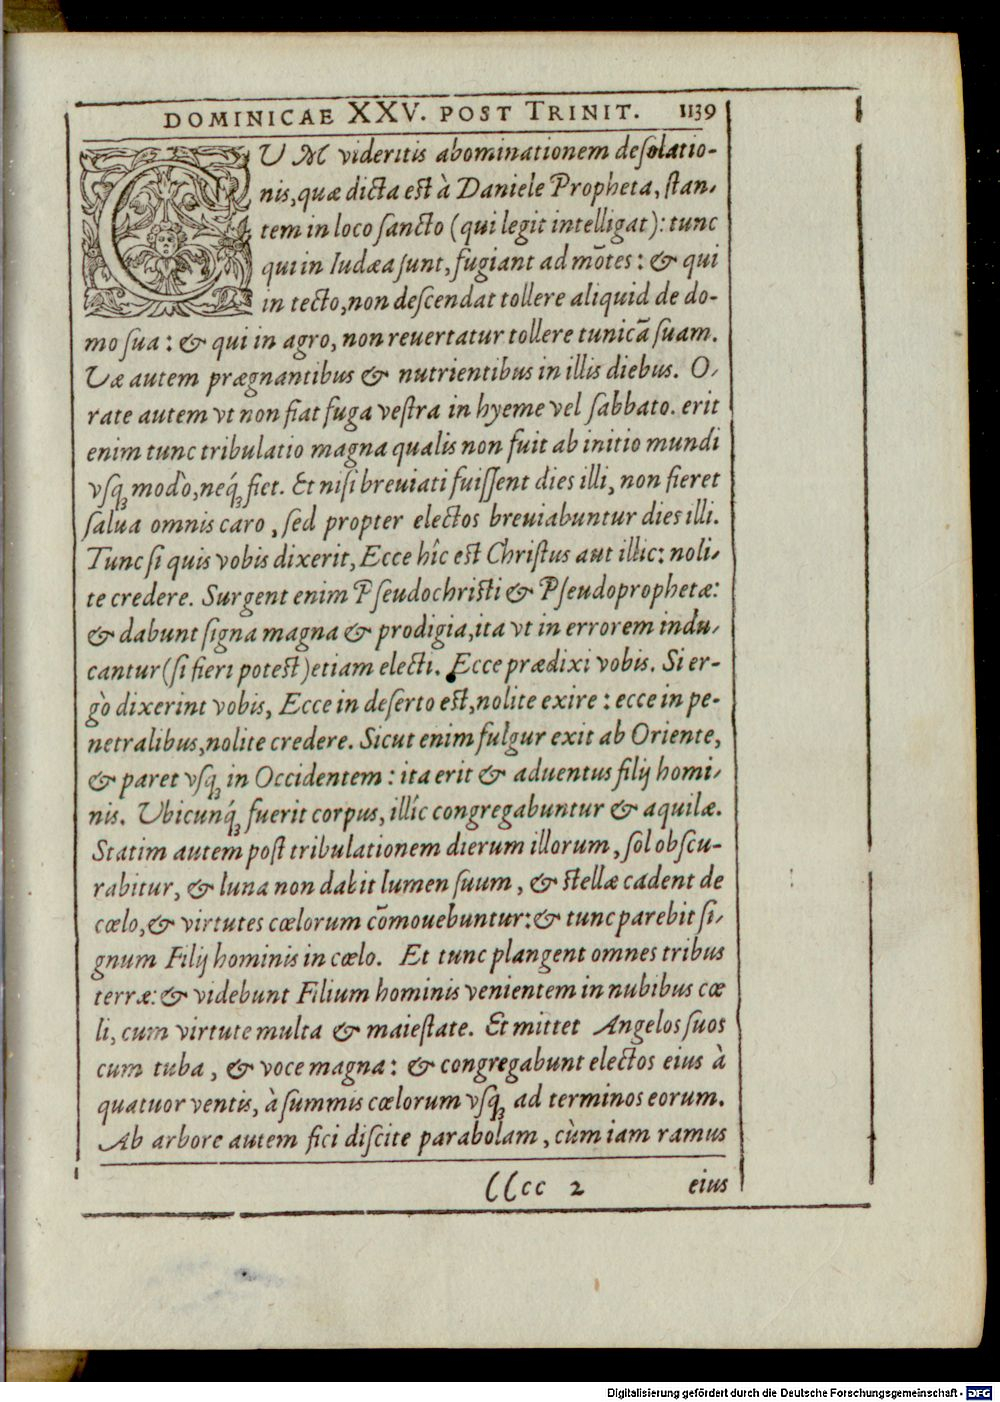 DOMINICAE XXV. POST TRINIT. 1139
CUM videritis abominationem desolatio-
nis, quæ dicta est à Daniele Propheta, stan-
tem in loco sancto (qui legit intelligat): tunc
qui in Iudæa sunt, fugiant ad mõtes: & qui
in tecto, non descendat tollere aliquid de do-
mo sua: & qui in agro, non reuertatur tollere tunicã suam.
Væ autem prægnantibus & nutrientibus in illis diebus. O-
rate autem vt non fiat fuga vestra in hyeme vel sabbato. erit
enim tunc tribulatio magna qualis non fuit ab initio mundi
vsq; modò, neq́; fiet. Et nisi breuiati fuissent dies illi, non fieret
salua omnis caro, sed propter electos breuiabuntur dies illi.
Tunc si quis vobis dixerit, Ecce hîc est Christus aut illic: noli-
te credere. Surgent enim Pseudochristi & Pseudoprophetæ:
& dabunt signa magna & prodigia, ita vt in errorem indu-
cantur (si fieri potest) etiam electi. Ecce prædixi vobis. Si er-
gò dixerint vobis, Ecce in deserto est, nolite exire: ecce in pe-
netralibus, nolite credere. Sicut enim fulgur exit ab Oriente,
& paret vsq; in Occidentem: ita erit & aduentus filij homi-
nis. Ubicunq́; fuerit corpus, illíc congregabuntur & aquilæ.
Statim autem post tribulationem dierum illorum, sol obscu-
rabitur, & luna non dabit lumen suum, & stellæ cadent de
cœlo, & virtutes cœlorum cõmouebuntur: & tunc parebit si-
gnum Filij hominis in cœlo. Et tunc plangent omnes tribus
terræ: & videbunt Filium hominis venientem in nubibus cœ
li, cum virtute multa & maiestate. Et mittet Angelos suos
cum tuba, & voce magna: & congregabunt electos eius à
quatuor ventis, à summis cœlorum vsq; ad terminos eorum.
Ab arbore autem fici discite parabolam, cùm iam ramus
CCcc 2 eius
Digitalisierung gefördert durch die Deutsche Forschungsgemeinschaft - DFG